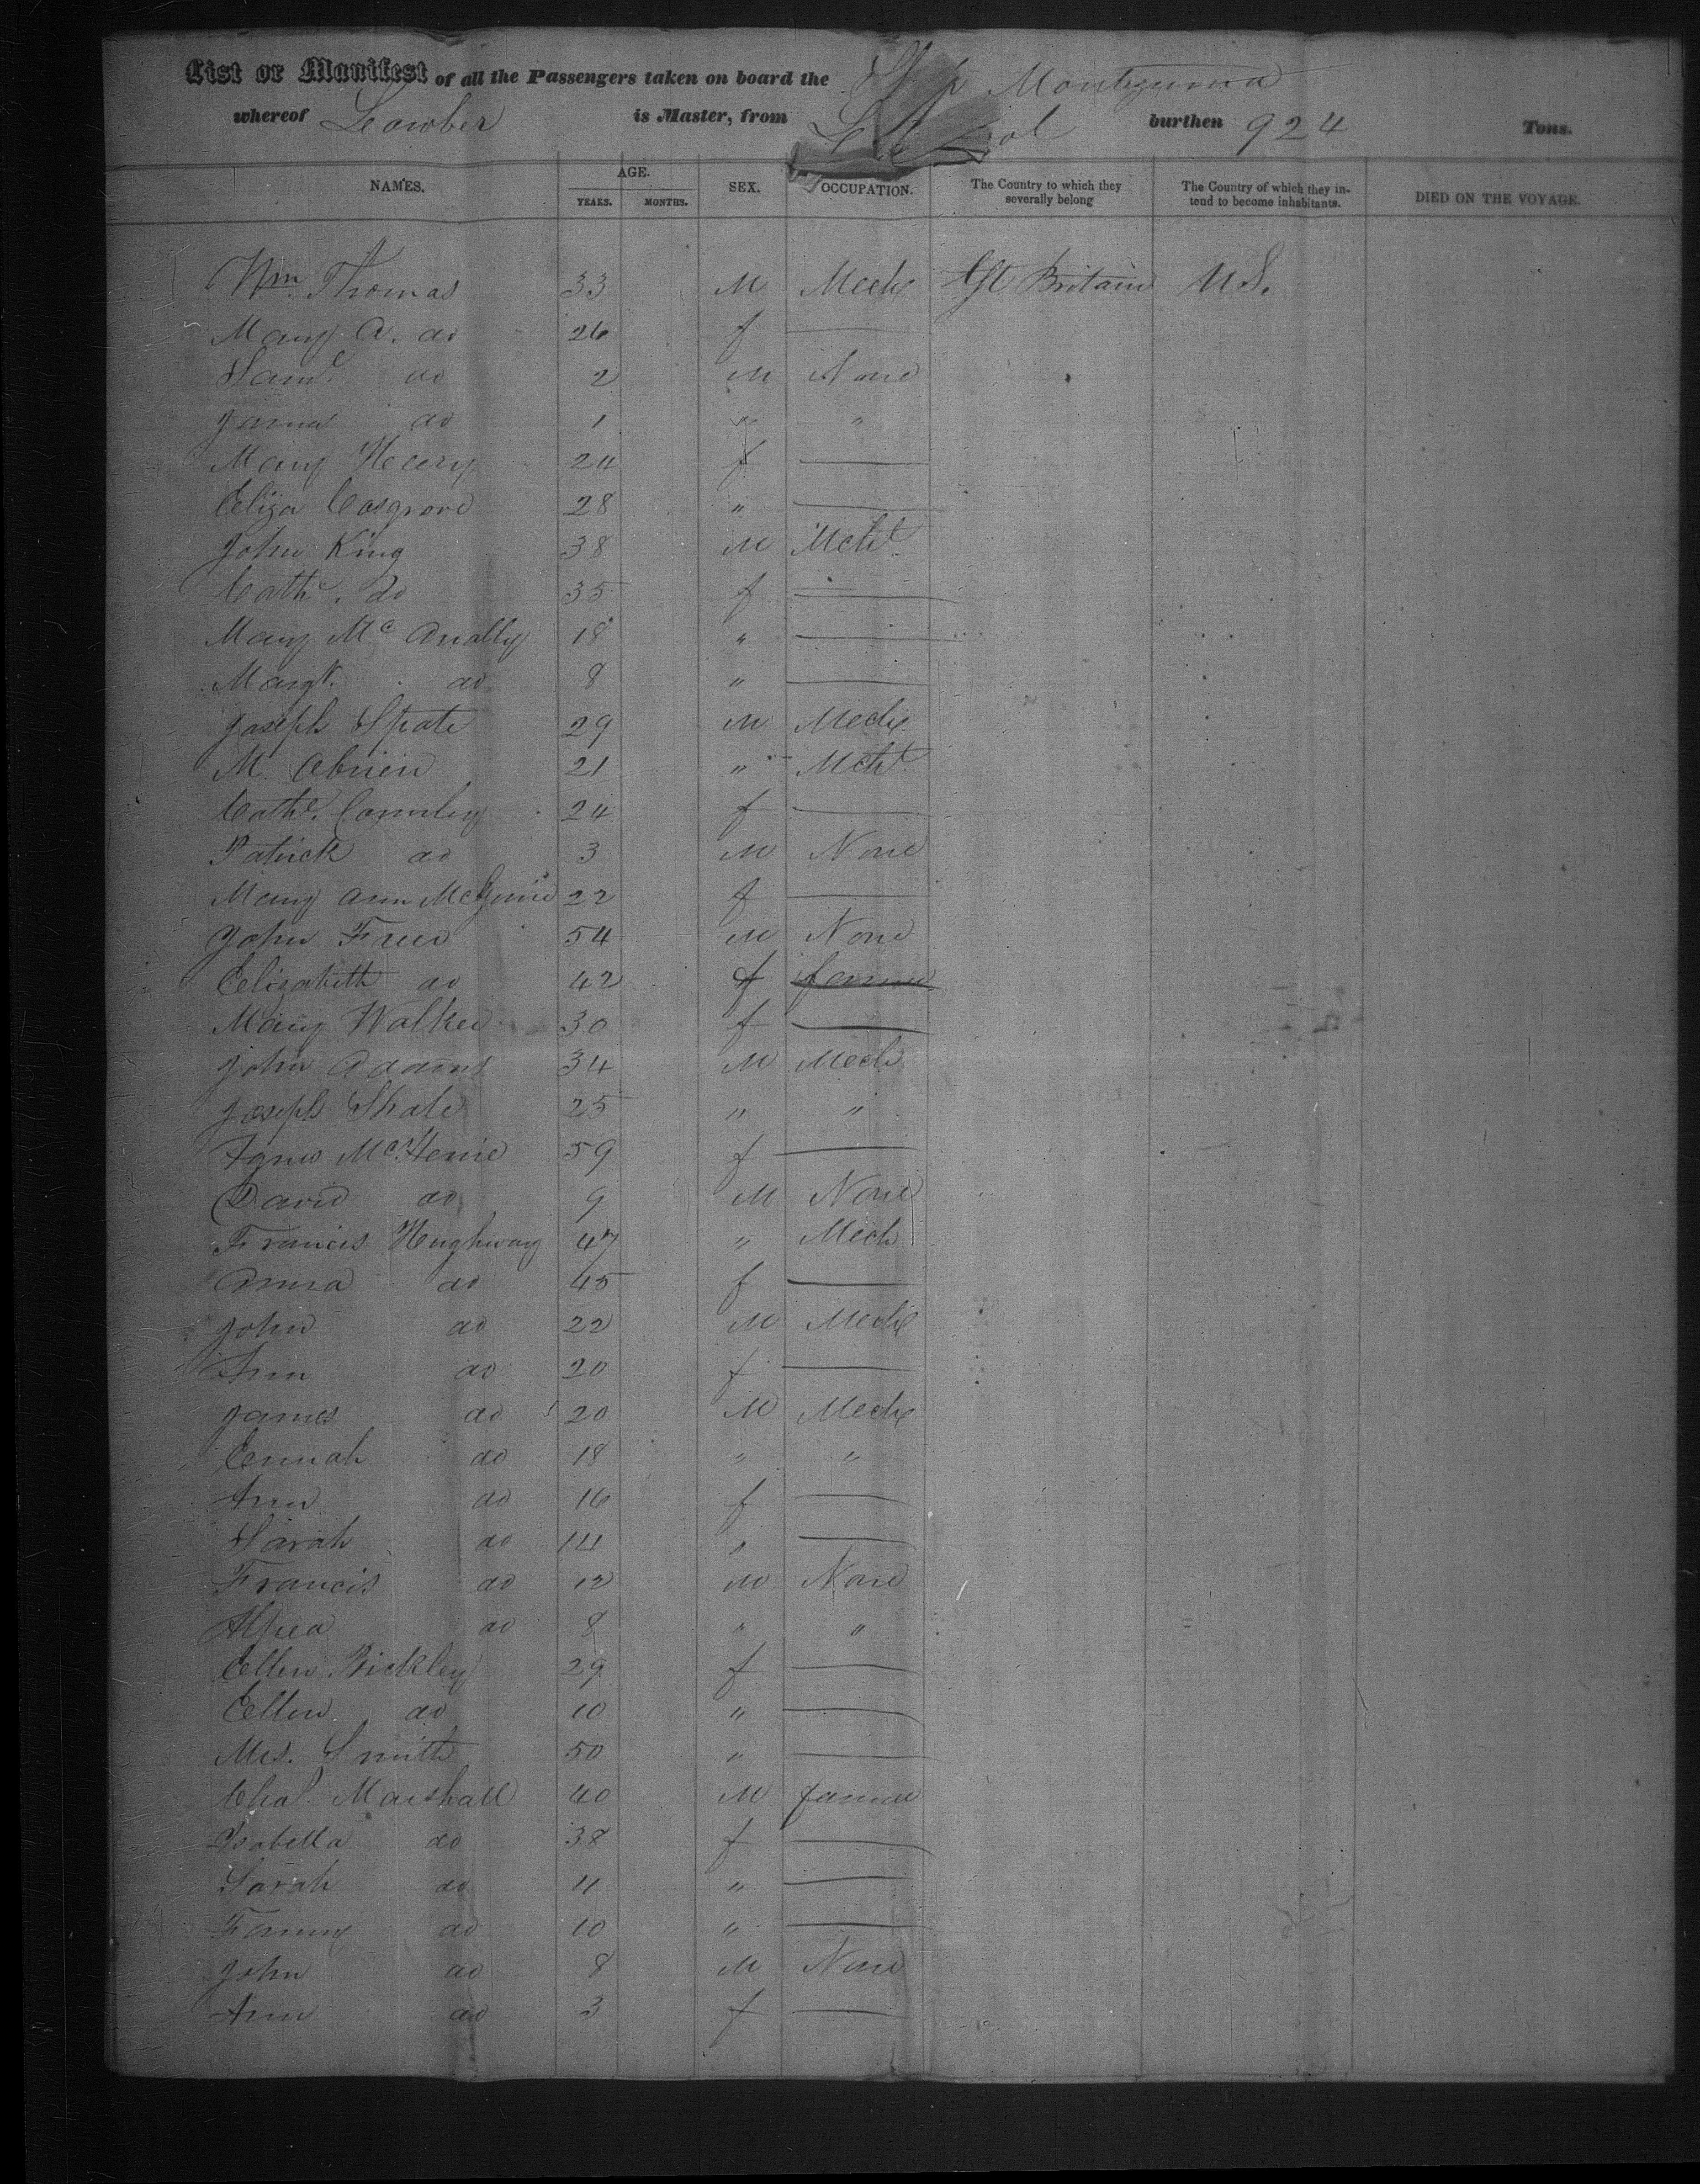 List or Manifest of all the Passengers taken on board the Ship Montezuma
whereof Lowber is Master, from burthen 924 Tons.
NAMES. AGE. YEARS. MONTHS. SEX. OCCUPATION. The Country to which they severally belong The Country of which they intend to become inhabitants. DIED ON THE VOYAGE.
Wm. Thomas 33 M Mech Gt Britain U.S.
Mary A. do 26 f
Saml. do 2 M None
James do 1 " "
Mary 24 f
Eliza Cosgrove 28 "
John King 38 M Mcht.
Cathe. do 35 f
Mary Mc Anally 18 "
Margt. do 8 "
Joseph 29 M Mech
M. Obrien 21 " Mcht.
Cathe. 24 f
Patrick do 3 M None
Mary Ann 22 f
John 54 M None
Elizabeth do 42 f
Mary Walker 30 f
John Adams 34 M Mech
Joseph 25 " "
Agnes 59 f
David do 9 M None
Francis Hughway 47 " Mech
Anna do 45 f
John do 22 M Mech
Ann do 20 f
James do 20 M Mech
do 18 " "
Ann do 16 f
Sarah do 14 "
Francis do 12 M None
Alfred do 8 " "
Ellen Bickley 29 f
Ellen do 10 "
Mrs. Smith 50 "
Chas. Marshall 40 M farmer
Isabella do 38 f
Sarah do 11 "
Fanny do 10 "
John do 8 M None
Ann do 3 f